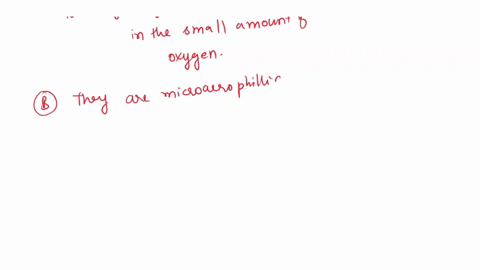 in the small amount of
oxygen.
B They are microaerophilli